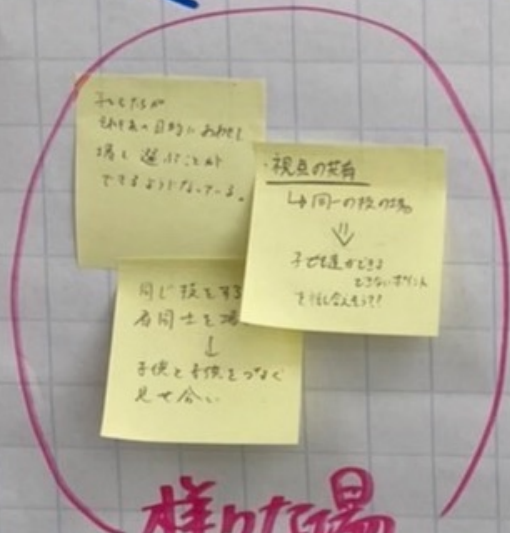 子どもたちが
それぞれの目的にあわせて
場を選ぶことが
できるようになっている。
・視点の共有
↳同一の技の場
⇓
子ども達ができる
できないポイント
同じ技をする
者同士を
↓
子供と子供をつなぐ
見せ合い
様々な場